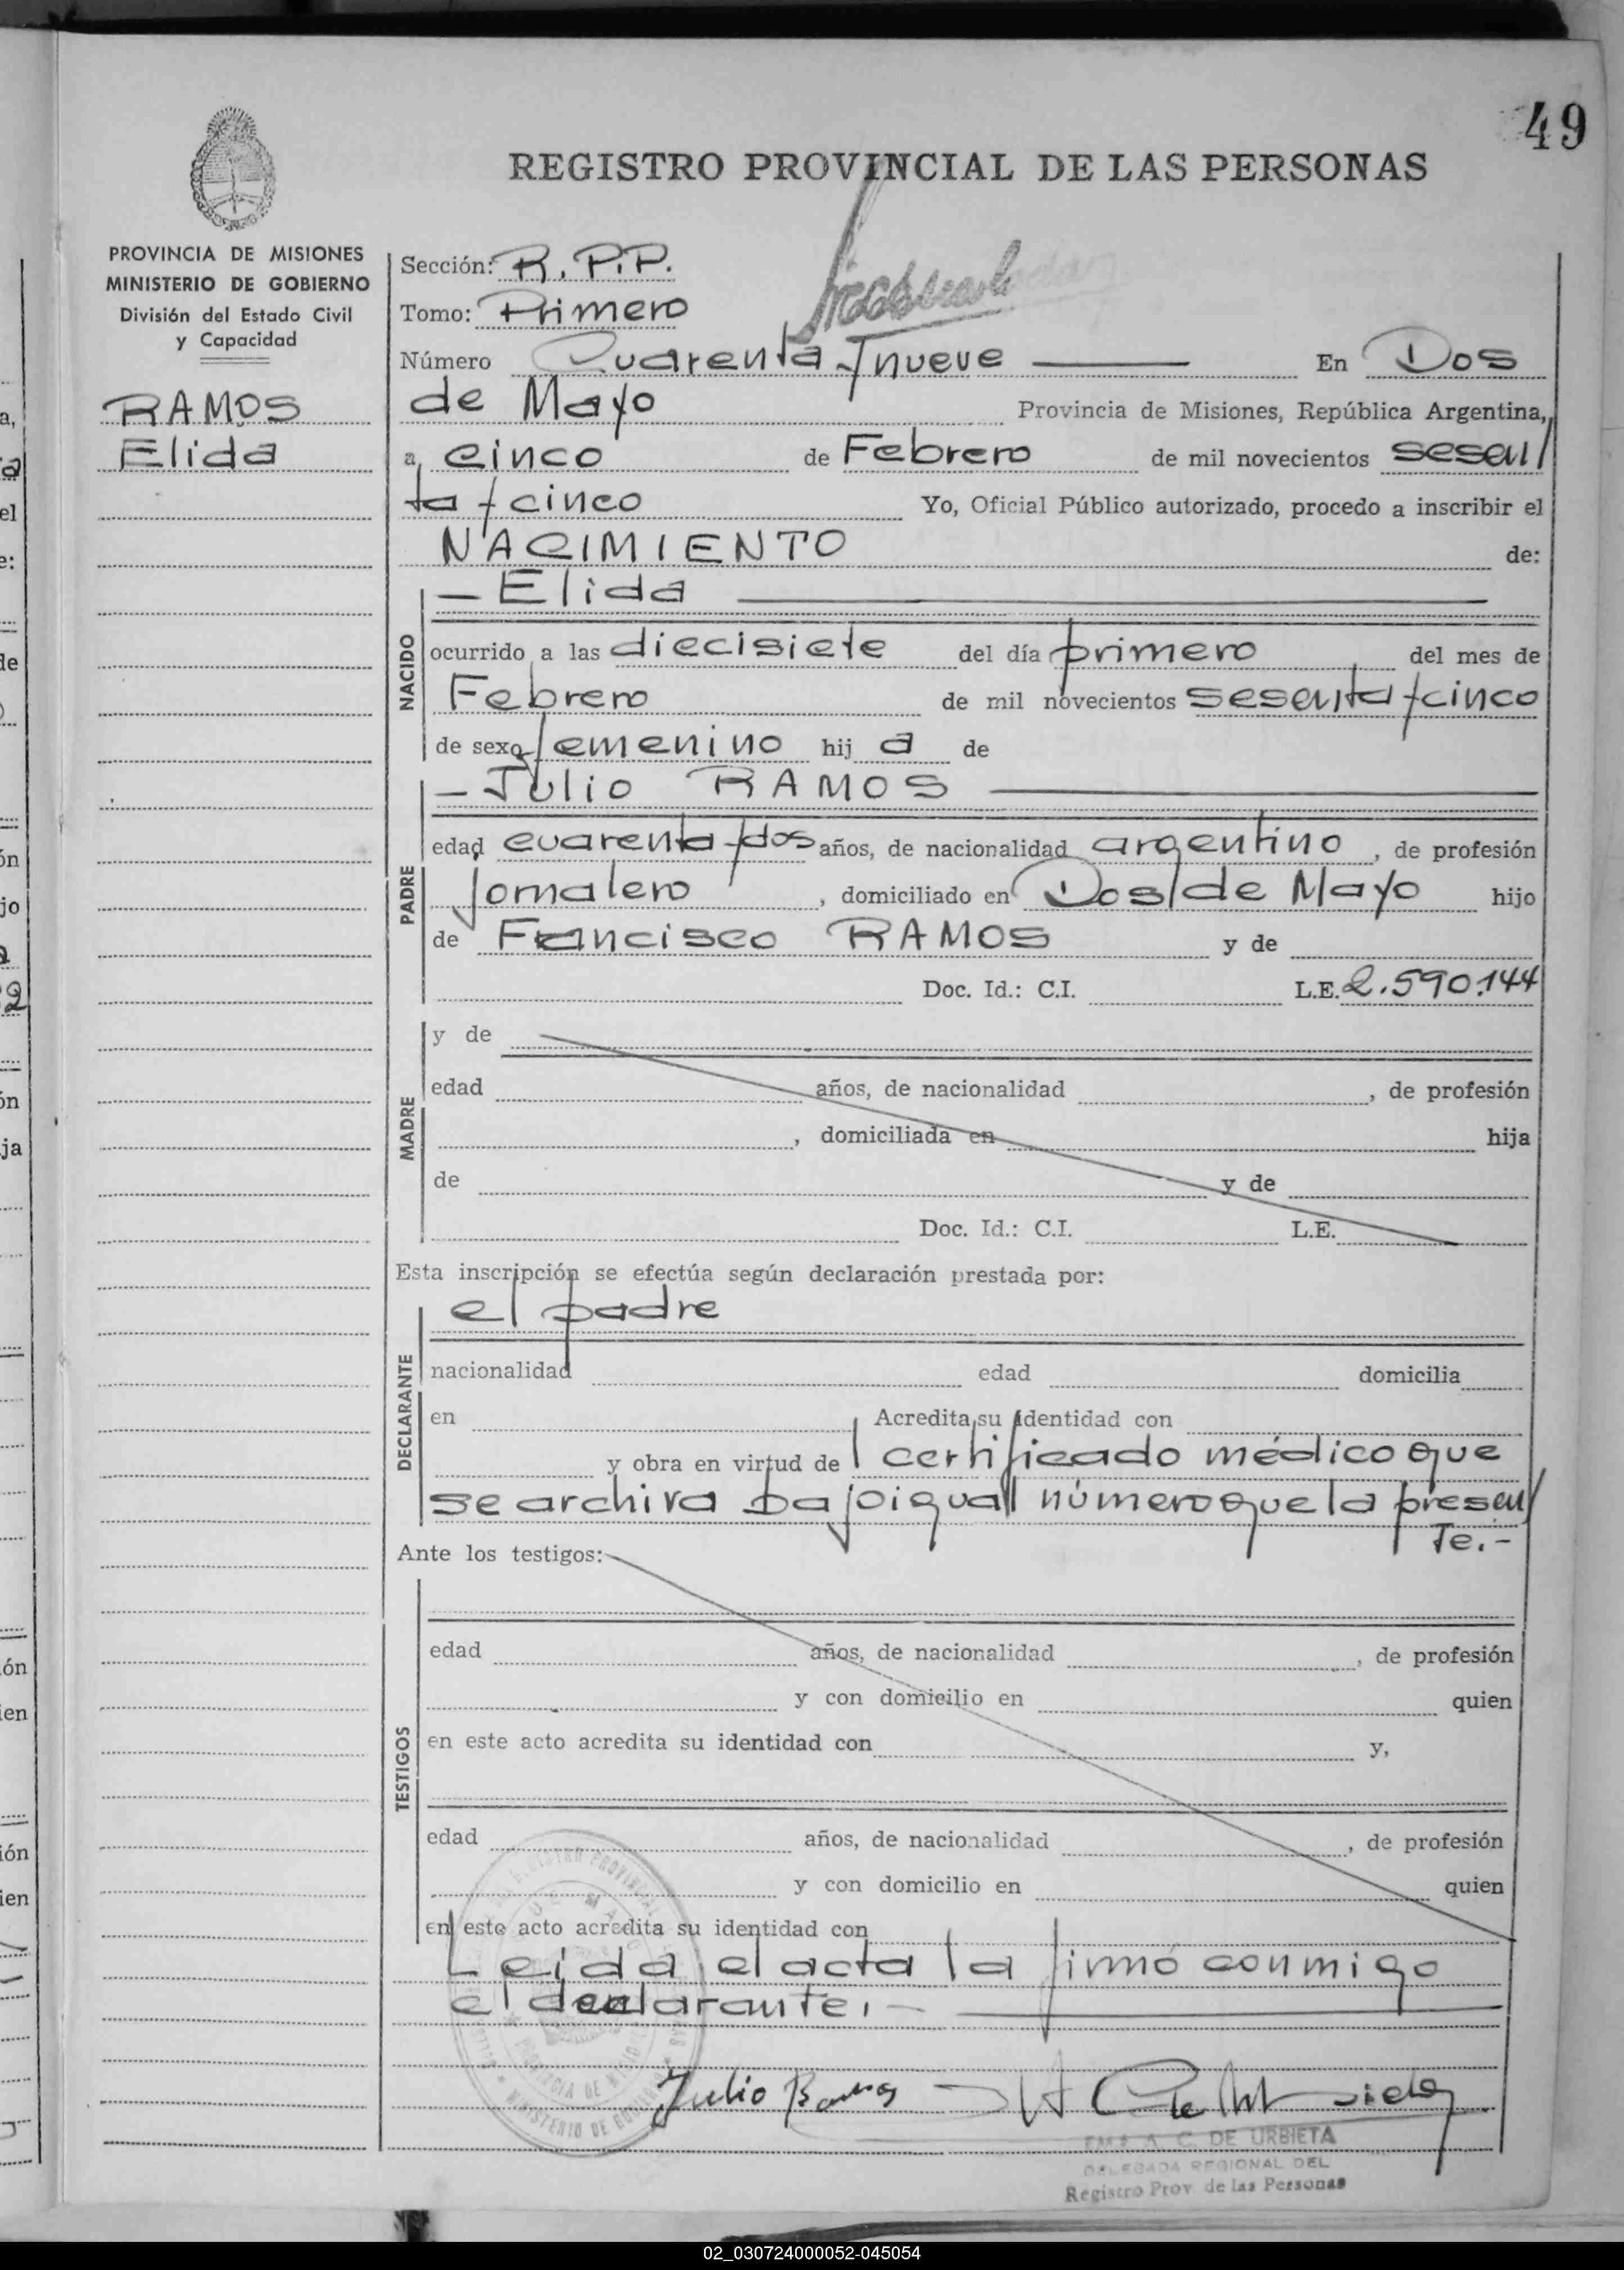 49
REGISTRO PROVINCIAL DE LAS PERSONAS
PROVINCIA DE MISIONES
MINISTERIO DE GOBIERNO
División del Estado Civil
y Capacidad
RAMOS
Elida
Sección: R. P. P.
Tomo: Primero
Número Cuarenta y nueve En Dos
de Mayo Provincia de Misiones, República Argentina,
a cinco de Febrero de mil novecientos sesen/
ta y cinco Yo, Oficial Público autorizado, procedo a inscribir el
NACIMIENTO de:
NACIDO
— Elida
ocurrido a las diecisiete del día primero del mes de
Febrero de mil novecientos sesenta y cinco
de sexo femenino hij a de
PADRE
— Julio RAMOS
edad cuarenta y dos años, de nacionalidad argentino, de profesión
jornalero, domiciliado en Dos/de Mayo hijo
de Francisco RAMOS y de
Doc. Id.: C.I. L.E. 2.590.144
MADRE
y de
edad años, de nacionalidad , de profesión
, domiciliada en hija
de y de
Doc. Id.: C.I. L.E.
Esta inscripción se efectúa según declaración prestada por:
DECLARANTE
el padre
nacionalidad edad domicilia
en Acredita su identidad con
y obra en virtud de l certificado médico que
se archiva bajo igual número que la presen/
te.-
Ante los testigos:
TESTIGOS
edad años, de nacionalidad , de profesión
y con domicilio en quien
en este acto acredita su identidad con y,
edad años, de nacionalidad , de profesión
y con domicilio en quien
en este acto acredita su identidad con
Leida el acta la firmó conmigo
el declarante.-
Julio Ramos
A. C. DE URBIETA
DELEGADA REGIONAL DEL
Registro Prov. de las Personas
02_030724000052-045054